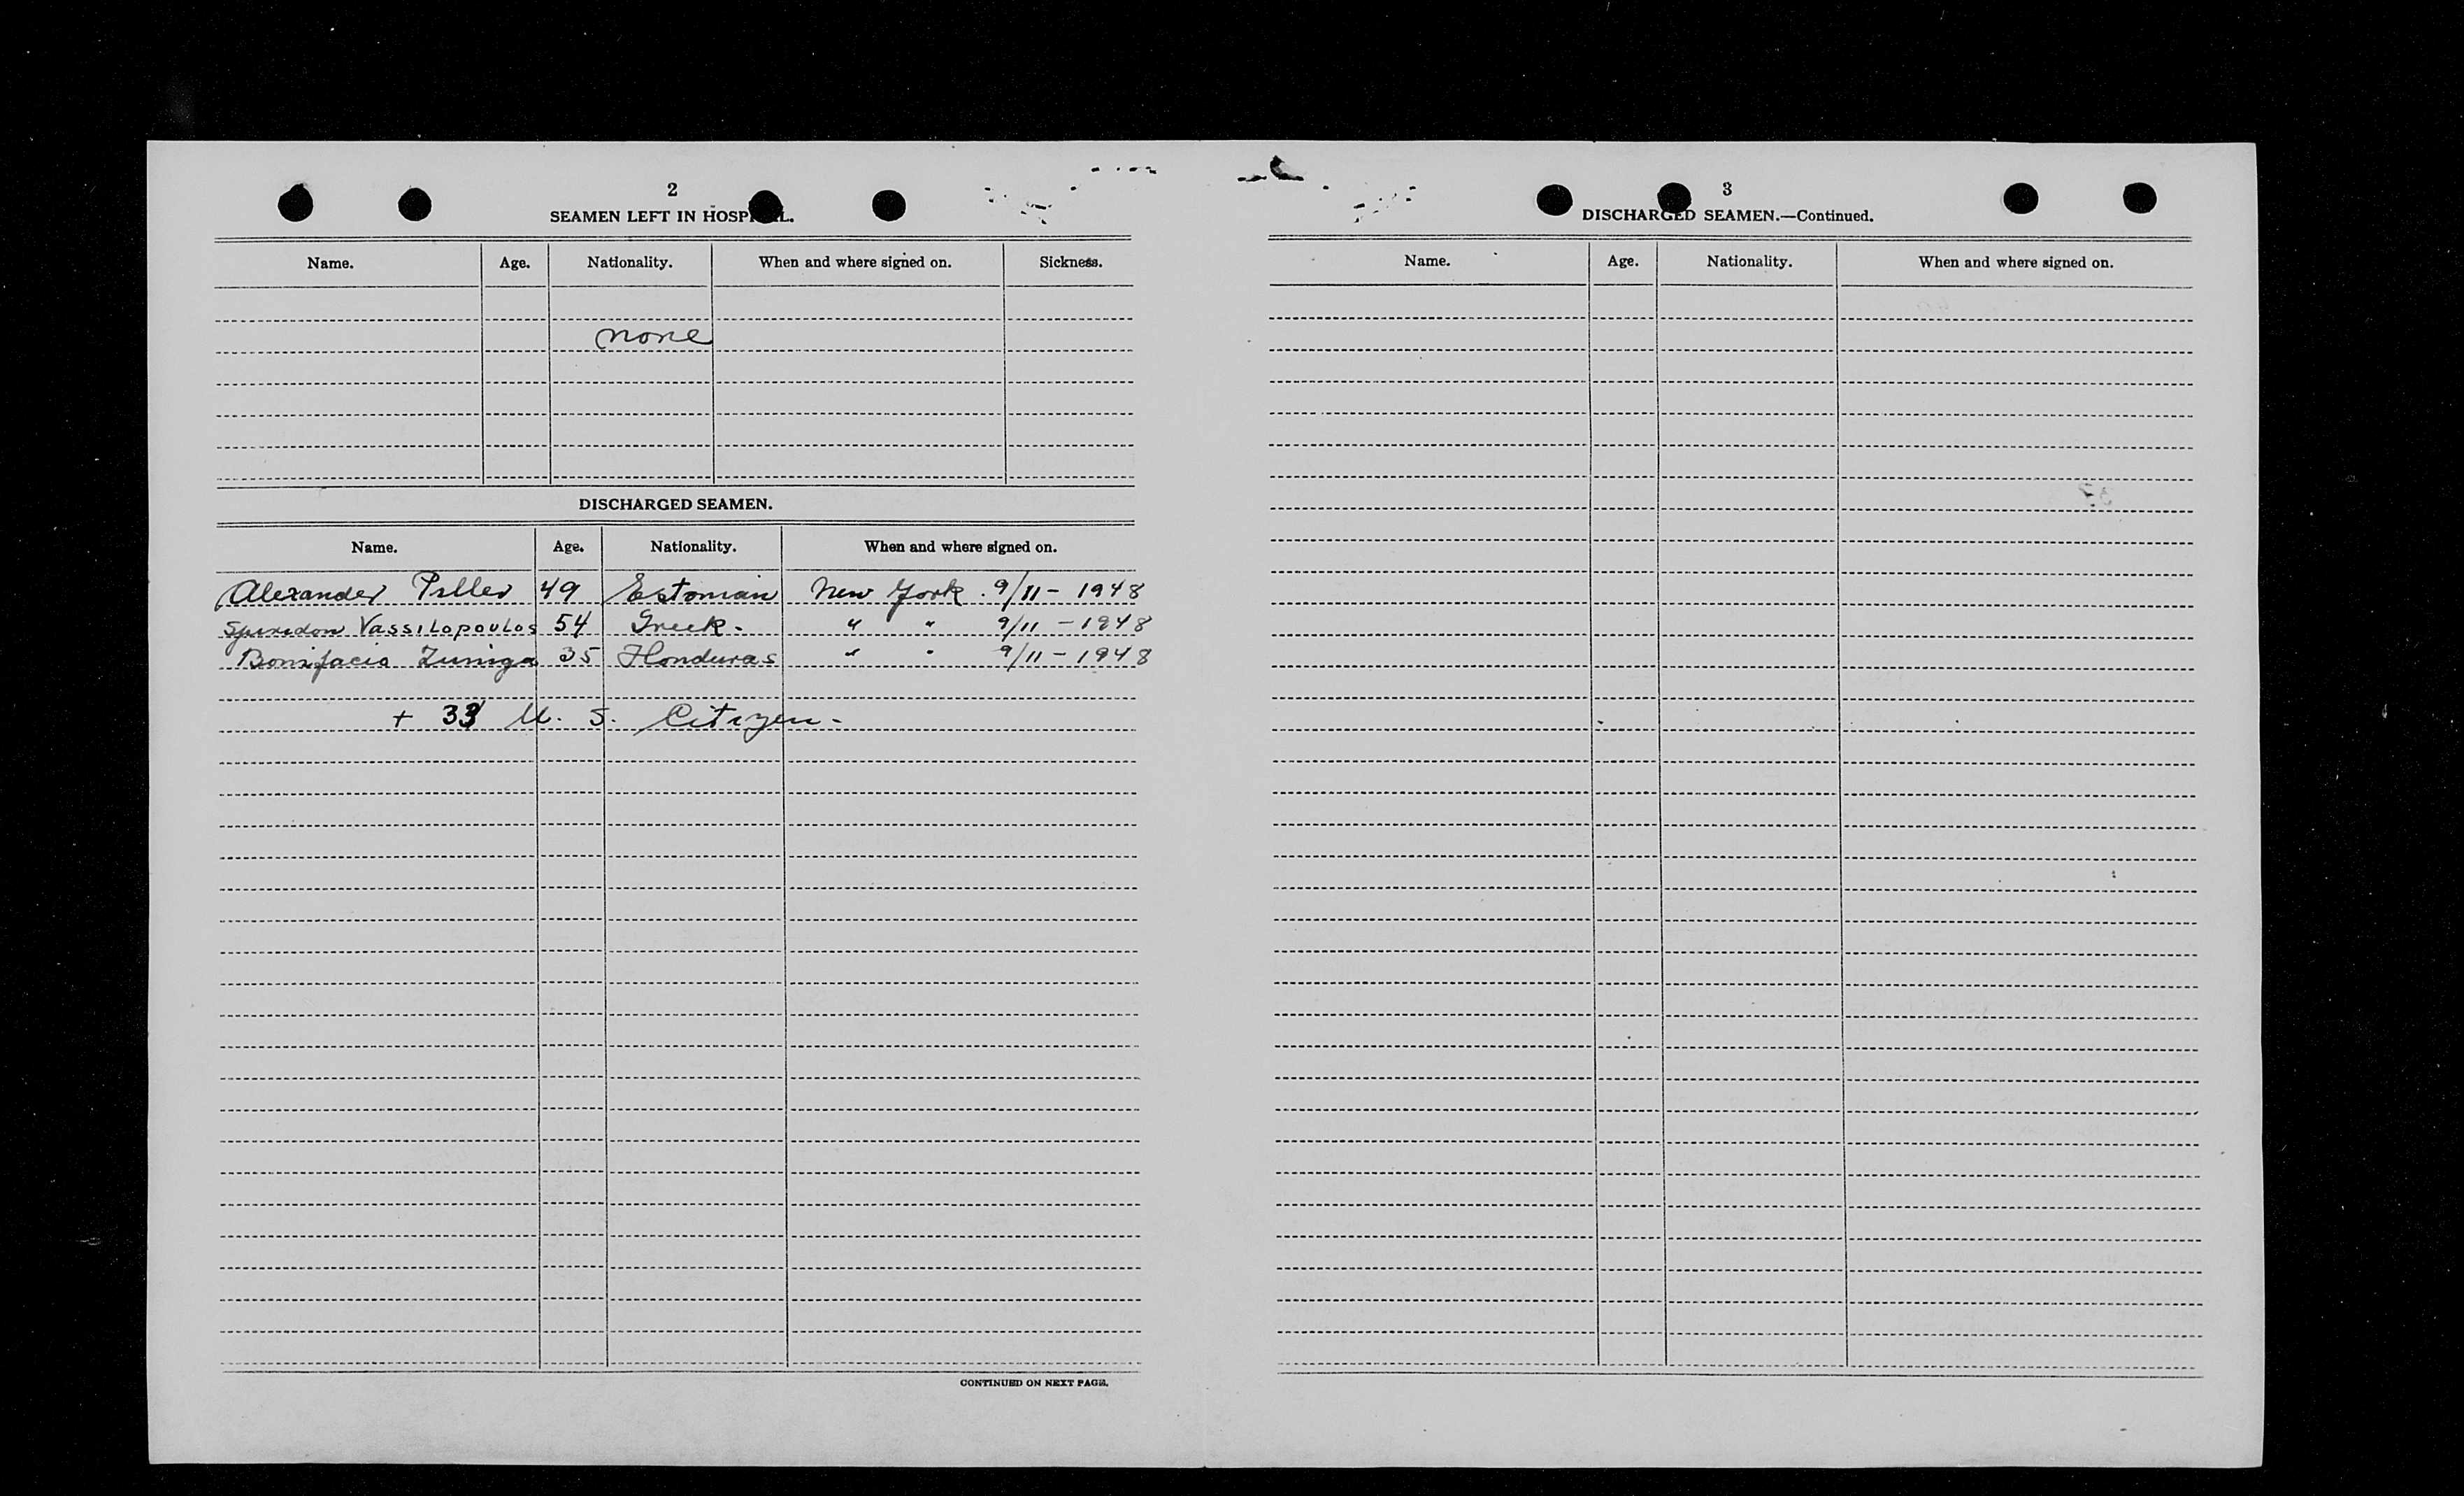 2
SEAMEN LEFT IN HOSP L.
Name. Age. Nationality. When and where signed on. Sickness.
none
DISCHARGED SEAMEN.
Name. Age. Nationality. When and where signed on.
Alexander 49 Estonian New York. 9/11 - 1948
Spiridon Vassilopoulos 54 Greek - " " 9/11 - 1948
Bonifacio Zuniga 35 Honduras " " 9/11 - 1948
+ 33 U. S. Citizen -
CONTINUED ON NEXT PAGE.
3
DISCHARGED SEAMEN.—Continued.
Name. Age. Nationality. When and where signed on.